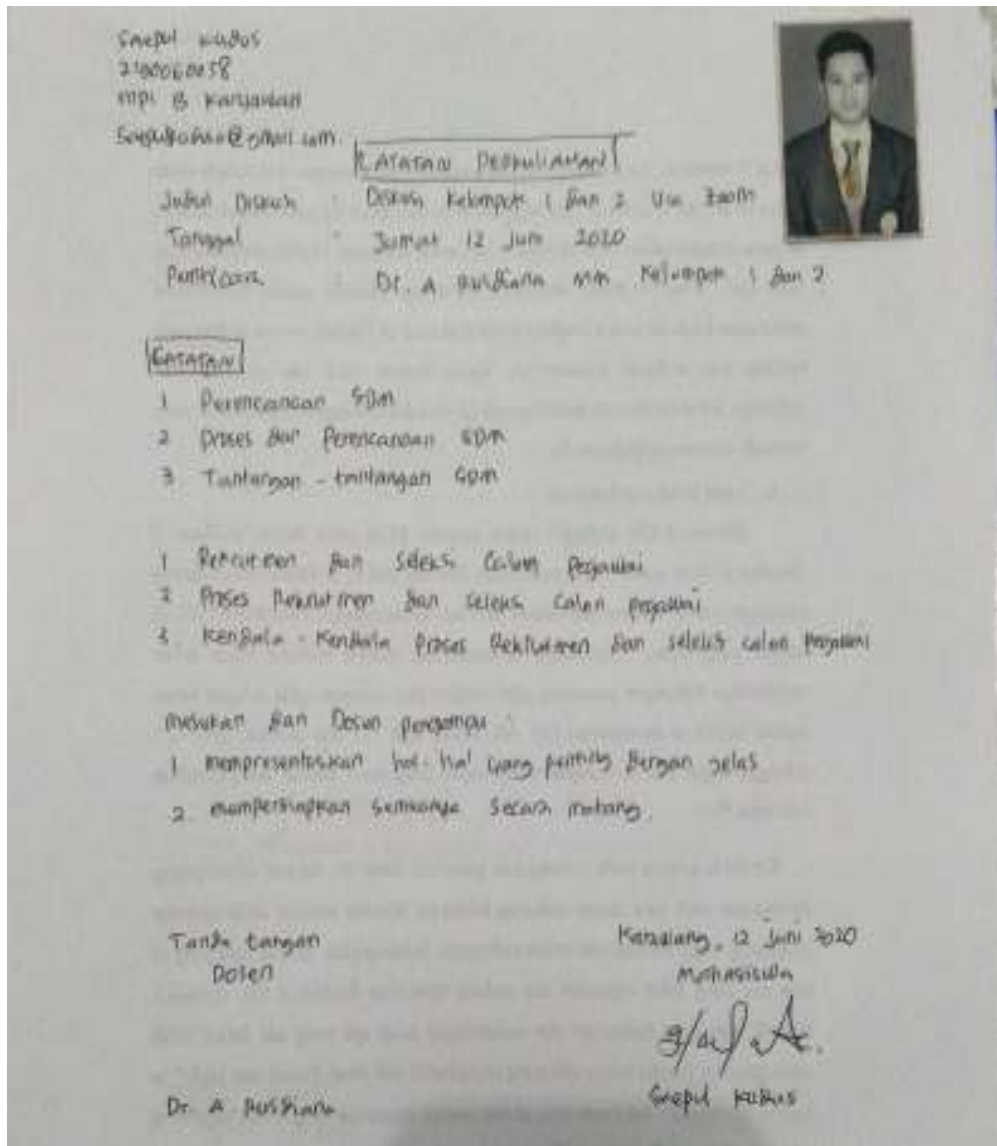 Saepul Kudus
2180060058
MPI B Karyawan
@gmail.com
CATATAN PERKULIAHAN
Judul Diskusi : Diskusi Kelompok 1 dan 2 via Zoom
Tanggal : Jumat 12 Juni 2020
Pembicara Dr. A Rusdiana MM Kelompok 1 dan 2
CATATAN
1 Perencanaan SDM
2 Proses dan Perencanaan SDM
3 Tantangan - tantangan SDM
1 Rekrutmen dan seleksi calon pegawai
2 Proses Rekrutmen dan seleksi calon pegawai
3 Kendala - Kendala Proses Rekrutmen dan seleksi calon pegawai
Masukan dan Dosen pengampu :
1. mempresentasikan hal-hal yang penting dengan jelas
2. mempersiapkan semuanya secara matang.
Tanda tangan
Dosen
Karawang, 12 Juni 2020
Mahasiswa
Saepul Kudus
Dr. A Rusdiana